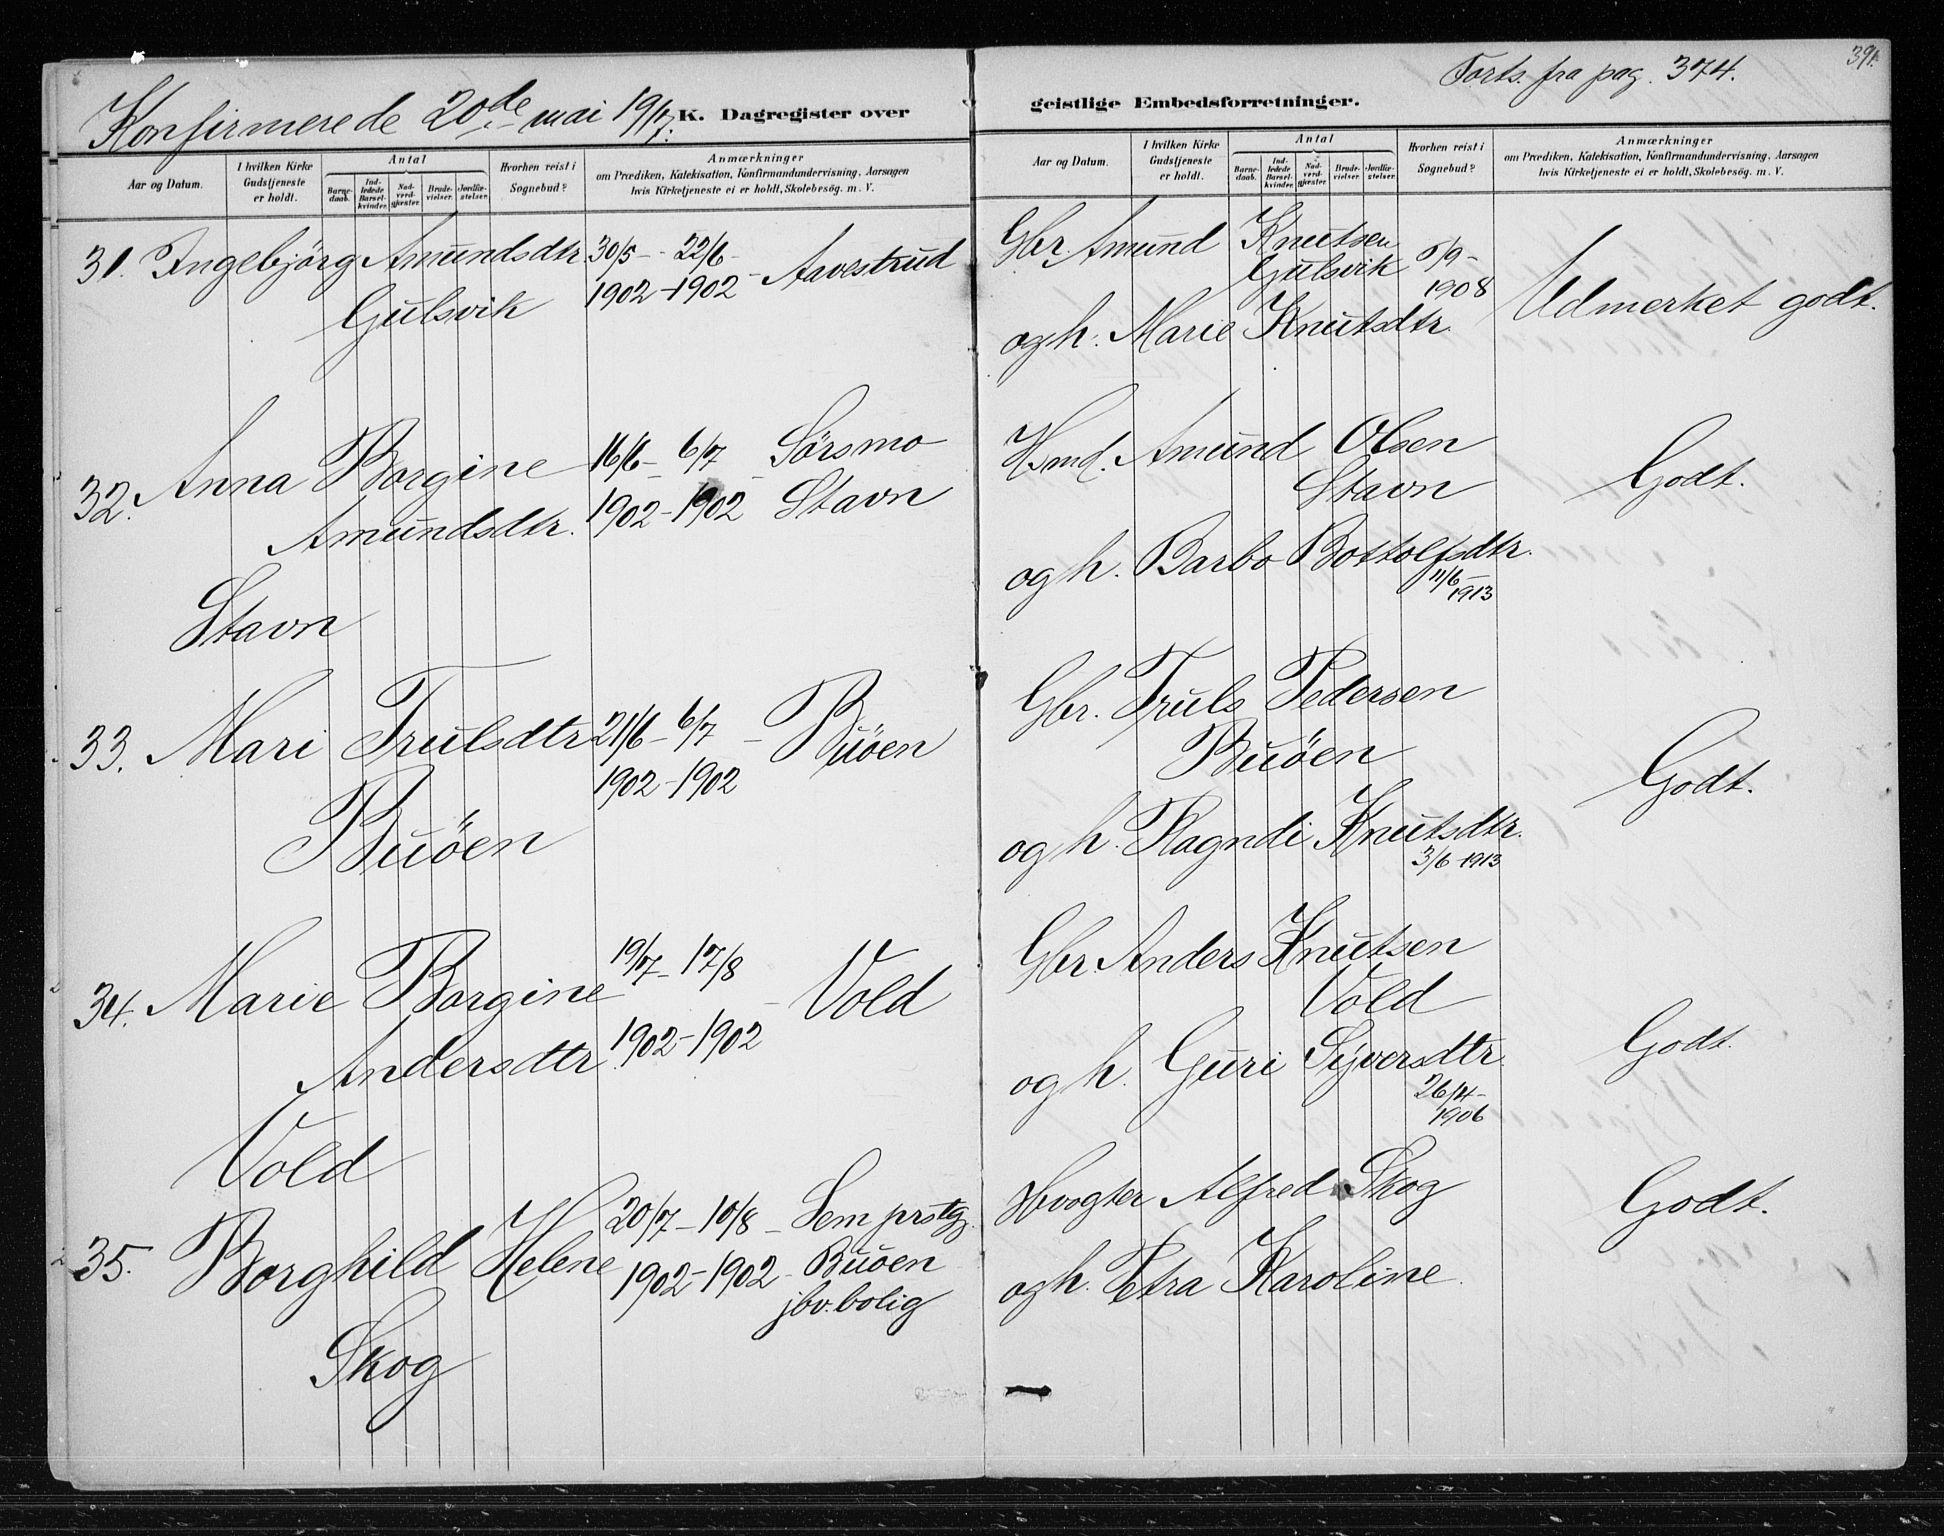 Konfirmerede 20de mai 1917. K. Dagregister over
Aar og Datum. I hvilken Kirke Gudstjeneste er holdt. Antal Barnedaab. Indledede Barselkvinder. Nadverdgjester. Brudevielser. Jordfæstelser. Hvorhen reist i Sognebud? Anmærkninger om Prædiken, Katekisation, Konfirmandundervisning, Aarsagen hvis Kirketjeneste ei er holdt, Skolebesög. m. V.
31. Ingebjörg Amundsdtr. 30/5 - 22/6 -
Gulsvik 1902 - 1902 - Aavestrud
32. Anna Borgine 16/6 - 6/7 - Sörsmo
Amundsdtr. 1902 - 1902 Stavn
Stavn
33. Mari Trulsdtr 21/6 - 6/7 - Buöen
Buöen 1902 - 1902
34. Marie Borgine 19/7 - 17/8 - Vold
Andersdtr. 1902 - 1902
Vold
35. Borghild Helene 20/7 - 10/8 - Sem prstg.
1902 - 1902 - Buöen
jbv. bolig
Skog
Forts. fra pag. 374.
391.
geistlige Embedsforretninger.
Aar og Datum. I hvilken Kirke Gudstjeneste er holdt. Antal Barnedaab. Indledede Barselkvinder. Nadverdgjester. Brudevielser. Jordfæstelser. Hvorhen reist i Sognebud? Anmærkninger om Prædiken, Katekisation, Konfirmandundervisning, Aarsagen hvis Kirketjeneste ei er holdt, Skolebesög. m. V.
Gbr. Amund Knutsen
Gulsvik 5/9 -
1908
og h. Marie Knutsdtr. Udmerket godt.
Hsmd. Amund Olsen
Stavn Godt.
og h. Barbo Bottolfsdtr.
11/6 -
1913
Gbr. Truls Pedersen
Buöen
Godt.
og h. Ragndi Knutsdtr.
3/6 - 1913
Gbr. Anders Knutsen
Vold
og h. Guri Syversdtr. Godt.
26/4 -
1906
Hvogter Alfred Skog Godt.
og h. Petra Karoline.